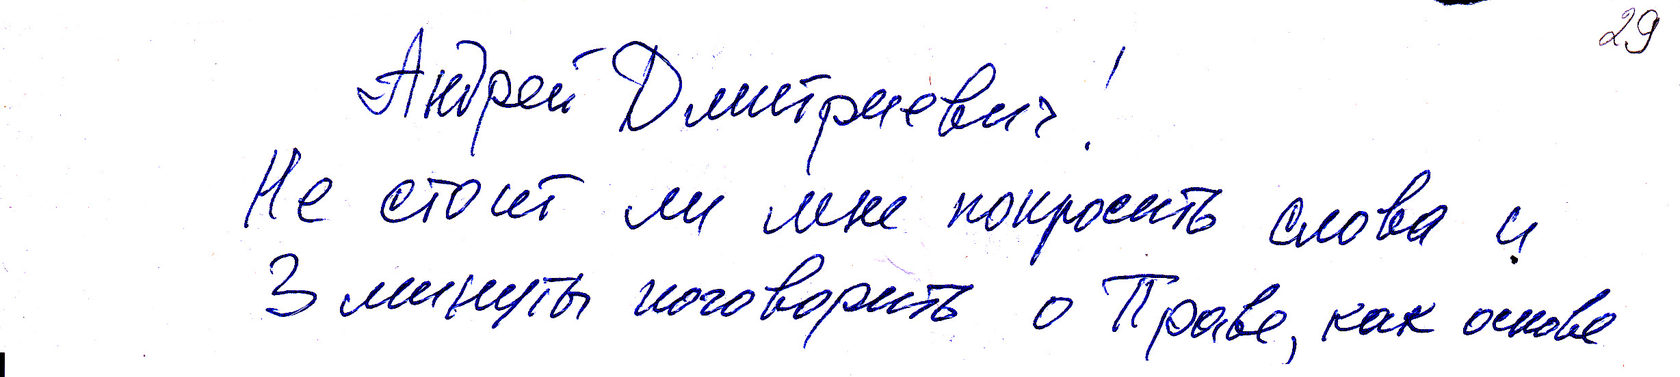 29
Андрей Дмитриевич!
Не стоит ли мне попросить слова и
3 минуты поговорить о Праве, как основе